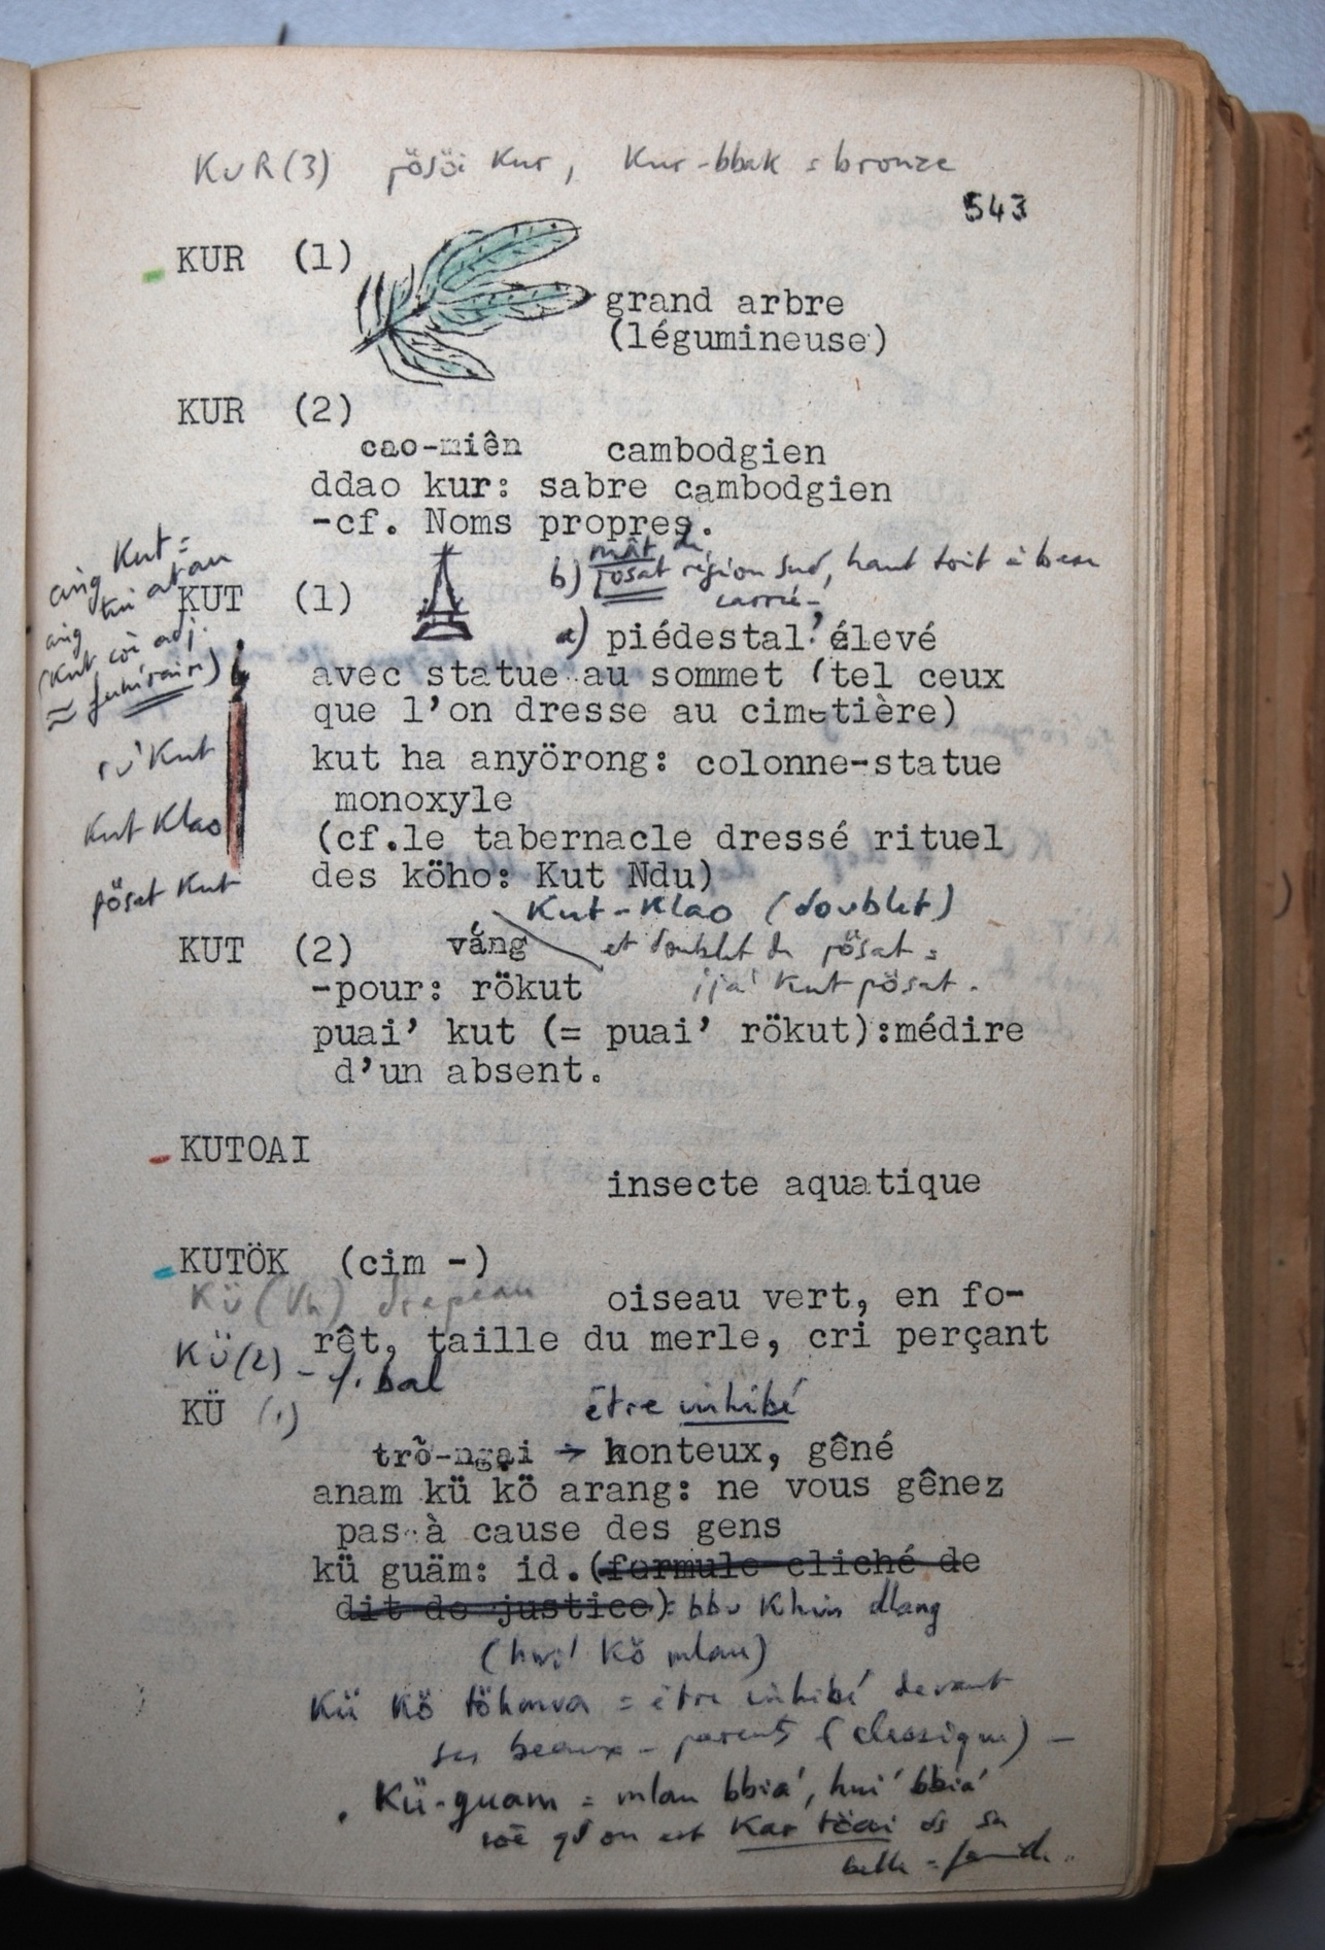 KUR(3) pösöi Kur, Kur-bbak = bronze
543
KUR (1)
grand arbre
(légumineuse)
KUR (2)
cao-miên cambodgien
ddao kur: sabre cambodgien
-cf. Noms propres.
ang Kut =
ang
b) mât du
posat région Sud, haut toit à base
carrée-
KUT (1)
a) piédestal élevé
avec statue au sommet (tel ceux
que l'on dresse au cimetière)
rü' Kut
kut ha anyörong: colonne-statue
monoxyle
Kut Klao
(cf.le tabernacle dressé rituel
des köho: Kut Ndu)
pösat Kut
Kut-Klao (doublet)
KUT (2) váng
et doublet de pösat =
-pour: rökut
Kut pösat.
puai' kut (= puai' rökut):médire
d'un absent.
KUTOAI
insecte aquatique
KUTÖK (cim -)
Kü (Vn) drapeau
oiseau vert, en fo-
rêt, taille du merle, cri perçant
KÜ(2) - f. bal
KÜ (1)
être inhibé
trở-ngại → honteux, gêné
anam kü kö arang: ne vous gênez
pas à cause des gens
kü guäm: id.(formule cliché de
dit de justice): bbu Khin dlang
(hui' Kö mlau)
Kü Kö töhmua = être inhibé devant
ses beaux-parents (classique) -
. Kü-guam = mlau bbia', hui' bbia'
qd on est Kar töai ds sa
belle-famille.